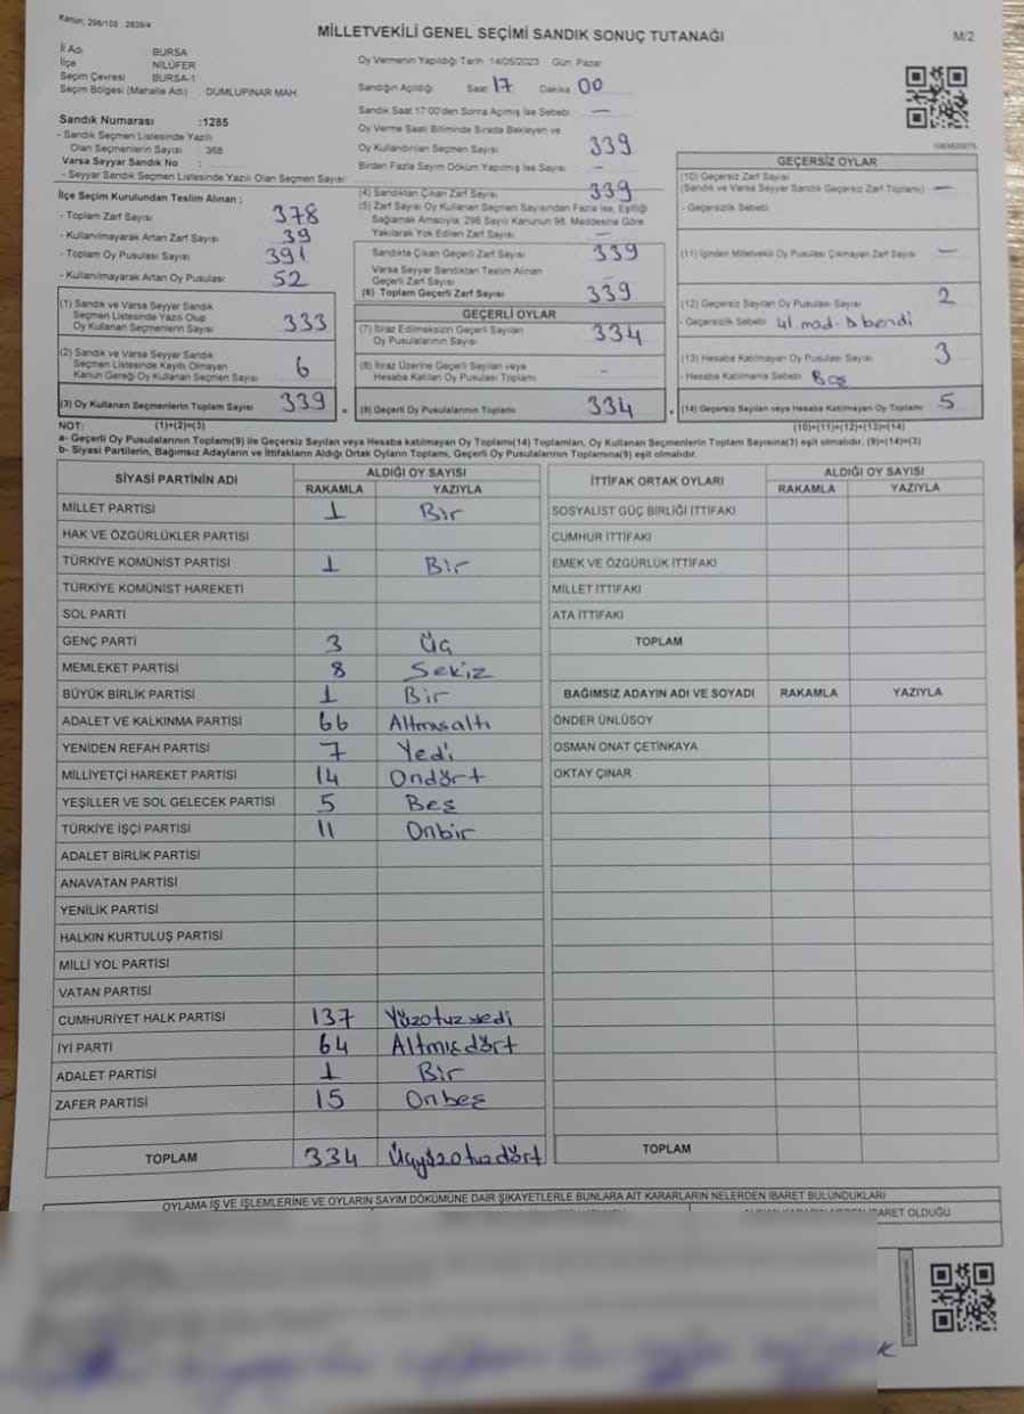 Kanun; 298/105 2839/4
MİLLETVEKİLİ GENEL SEÇİMİ SANDIK SONUÇ TUTANAĞI
M/2
İl Adı : BURSA
İlçe : NİLÜFER
Seçim Çevresi : BURSA-1
Seçim Bölgesi (Mahalle Adı) : DUMLUPINAR MAH.
Sandık Numarası :1285
- Sandık Seçmen Listesinde Yazılı
Olan Seçmenlerin Sayısı : 368
Varsa Seyyar Sandık No :
- Seyyar Sandık Seçmen Listesinde Yazılı Olan Seçmen Sayısı
İlçe Seçim Kurulundan Teslim Alınan :
- Toplam Zarf Sayısı 378
- Kullanılmayarak Artan Zarf Sayısı 39
- Toplam Oy Pusulası Sayısı 391
- Kullanılmayarak Artan Oy Pusulası 52
(1) Sandık ve Varsa Seyyar Sandık
Seçmen Listesinde Yazılı Olup
Oy Kullanan Seçmenlerin Sayısı 333
(2) Sandık ve Varsa Seyyar Sandık
Seçmen Listesinde Kayıtlı Olmayan
Kanun Gereği Oy Kullanan Seçmen Sayısı 6
(3) Oy Kullanan Seçmenlerin Toplam Sayısı 339
Oy Vermenin Yapıldığı Tarih 14/05/2023 Gün Pazar
Sandığın Açıldığı Saat 17 Dakika 00
Sandık Saat 17:00'den Sonra Açılmış İse Sebebi —
Oy Verme Saati Bitiminde Sırada Bekleyen ve
Oy Kullandırılan Seçmen Sayısı 339
Birden Fazla Sayım Döküm Yapılmış İse Sayısı -
(4) Sandıktan Çıkan Zarf Sayısı 339
(5) Zarf Sayısı Oy Kullanan Seçmen Sayısından Fazla İse, Eşitliği
Sağlamak Amacıyla, 298 Sayılı Kanunun 98. Maddesine Göre
Yakılarak Yok Edilen Zarf Sayısı —
Sandıkta Çıkan Geçerli Zarf Sayısı 339
Varsa Seyyar Sandıktan Teslim Alınan
Geçerli Zarf Sayısı -
(6) Toplam Geçerli Zarf Sayısı 339
GEÇERLİ OYLAR
(7) İtiraz Edilmeksizin Geçerli Sayılan
Oy Pusulalarının Sayısı 334
(8) İtiraz Üzerine Geçerli Sayılan veya
Hesaba Katılan Oy Pusulası Toplamı -
(9) Geçerli Oy Pusulalarının Toplamı 334
GEÇERSİZ OYLAR
(10) Geçersiz Zarf Sayısı
(Sandık ve Varsa Seyyar Sandık Geçersiz Zarf Toplamı) —
- Geçersizlik Sebebi
(11) İçinden Milletvekili Oy Pusulası Çıkmayan Zarf Sayısı —
(12) Geçersiz Sayılan Oy Pusulası Sayısı 2
- Geçersizlik Sebebi 41. mad. b bendi
(13) Hesaba Katılmayan Oy Pusulası Sayısı 3
- Hesaba Katılmama Sebebi Boş
(14) Geçersiz Sayılan veya Hesaba Katılmayan Oy Toplamı 5
NOT: (1)+(2)=(3)
(10)+(11)+(12)+(13)=(14)
a- Geçerli Oy Pusulalarının Toplamı(9) ile Geçersiz Sayılan veya Hesaba katılmayan Oy Toplamı(14) Toplamları, Oy Kullanan Seçmenlerin Toplam Sayısına(3) eşit olmalıdır. (9)+(14)=(3)
b- Siyasi Partilerin, Bağımsız Adayların ve İttifakların Aldığı Ortak Oyların Toplamı, Geçerli Oy Pusulalarının Toplamına(9) eşit olmalıdır.
SİYASİ PARTİNİN ADI ALDIĞI OY SAYISI
RAKAMLA YAZIYLA
MİLLET PARTİSİ 1 Bir
HAK VE ÖZGÜRLÜKLER PARTİSİ
TÜRKİYE KOMÜNİST PARTİSİ 1 Bir
TÜRKİYE KOMÜNİST HAREKETİ
SOL PARTİ
GENÇ PARTİ 3 Üç
MEMLEKET PARTİSİ 8 Sekiz
BÜYÜK BİRLİK PARTİSİ 1 Bir
ADALET VE KALKINMA PARTİSİ 66 Altmışaltı
YENİDEN REFAH PARTİSİ 7 Yedi
MİLLİYETÇİ HAREKET PARTİSİ 14 Ondört
YEŞİLLER VE SOL GELECEK PARTİSİ 5 Beş
TÜRKİYE İŞÇİ PARTİSİ 11 Onbir
ADALET BİRLİK PARTİSİ
ANAVATAN PARTİSİ
YENİLİK PARTİSİ
HALKIN KURTULUŞ PARTİSİ
MİLLİ YOL PARTİSİ
VATAN PARTİSİ
CUMHURİYET HALK PARTİSİ 137 Yüzotuzyedi
İYİ PARTİ 64 Altmışdört
ADALET PARTİSİ 1 Bir
ZAFER PARTİSİ 15 Onbeş
TOPLAM 334 Üçyüzotuzdört
İTTİFAK ORTAK OYLARI ALDIĞI OY SAYISI
RAKAMLA YAZIYLA
SOSYALİST GÜÇ BİRLİĞİ İTTİFAKI
CUMHUR İTTİFAKI
EMEK VE ÖZGÜRLÜK İTTİFAKI
MİLLET İTTİFAKI
ATA İTTİFAKI
TOPLAM
BAĞIMSIZ ADAYIN ADI VE SOYADI RAKAMLA YAZIYLA
ÖNDER ÜNLÜSOY
OSMAN ONAT ÇETİNKAYA
OKTAY ÇINAR
TOPLAM
OYLAMA İŞ VE İŞLEMLERİNE VE OYLARIN SAYIM DÖKÜMÜNE DAİR ŞİKAYETLERLE BUNLARA AİT KARARLARIN NELERDEN İBARET BULUNDUKLARI
OLDUĞU